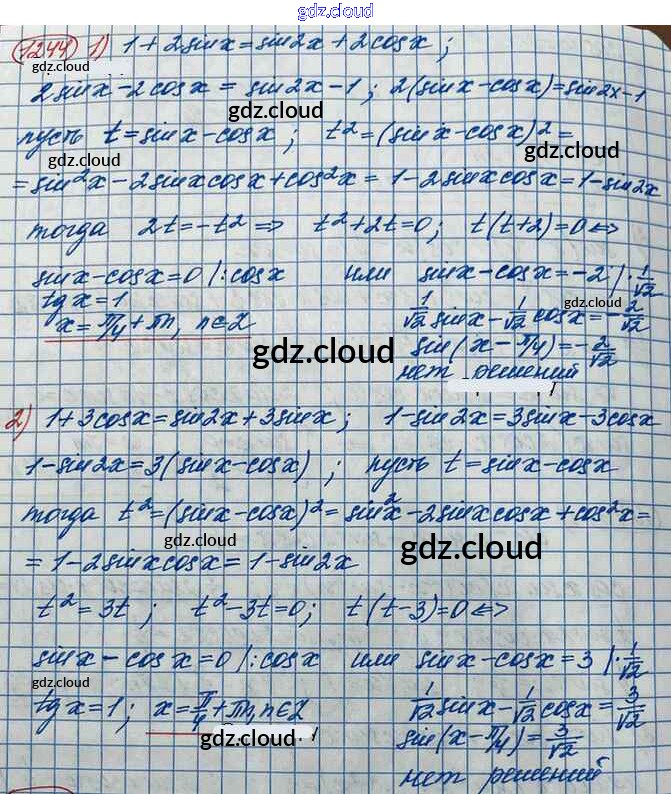 gdz.cloud
1244 1) 1+2sinx=sin2x+2cosx;
gdz.cloud
2sinx-2cosx=sin2x-1; 2(sinx-cosx)=sin2x-1
gdz.cloud
пусть t=sinx-cosx; t²=(sinx-cosx)²=
gdz.cloud gdz.cloud
=sin²x-2sinxcosx+cos²x=1-2sinxcosx=1-sin2x
gdz.cloud
тогда 2t=-t² => t²+2t=0; t(t+2)=0<=>
sinx-cosx=0 |:cosx или sinx-cosx=-2 |·1/√2
tgx=1 1/√2 sinx-1/√2 cosx=-2/√2
gdz.cloud
x=π/4+πn, n∈Z sin(x-π/4)=-2/√2
gdz.cloud
нет решений
2) 1+3cosx=sin2x+3sinx; 1-sin2x=3sinx-3cosx
1-sin2x=3(sinx-cosx); пусть t=sinx-cosx
gdz.cloud
тогда t²=(sinx-cosx)²=sin²x-2sinxcosx+cos²x=
gdz.cloud gdz.cloud
=1-2sinxcosx=1-sin2x
t²=3t; t²-3t=0; t(t-3)=0<=>
gdz.cloud
sinx-cosx=0 |:cosx или sinx-cosx=3 |·1/√2
gdz.cloud
tgx=1; x=π/4+πn, n∈Z 1/√2 sinx-1/√2 cosx=3/√2
gdz.cloud
sin(x-π/4)=3/√2
нет решений